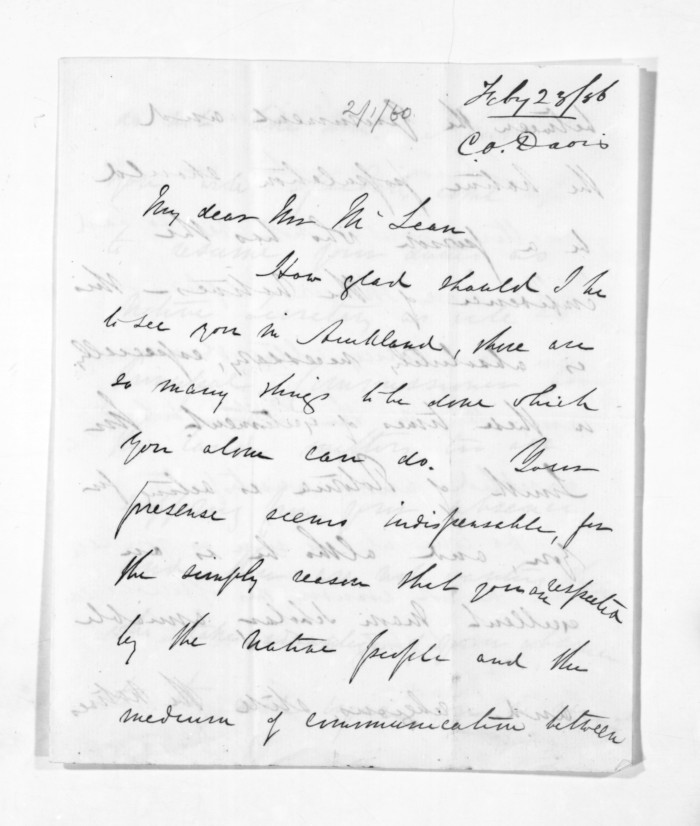 2/1/60
Feby 28/56
C.O. Davis
My dear Mr McLean
How glad should I be
to see you in Auckland, there are
so many things to be done which
you alone can do. Your
presense seems indispensable, for
the simply reason that you are respected
by the native people and the
medium of communication between